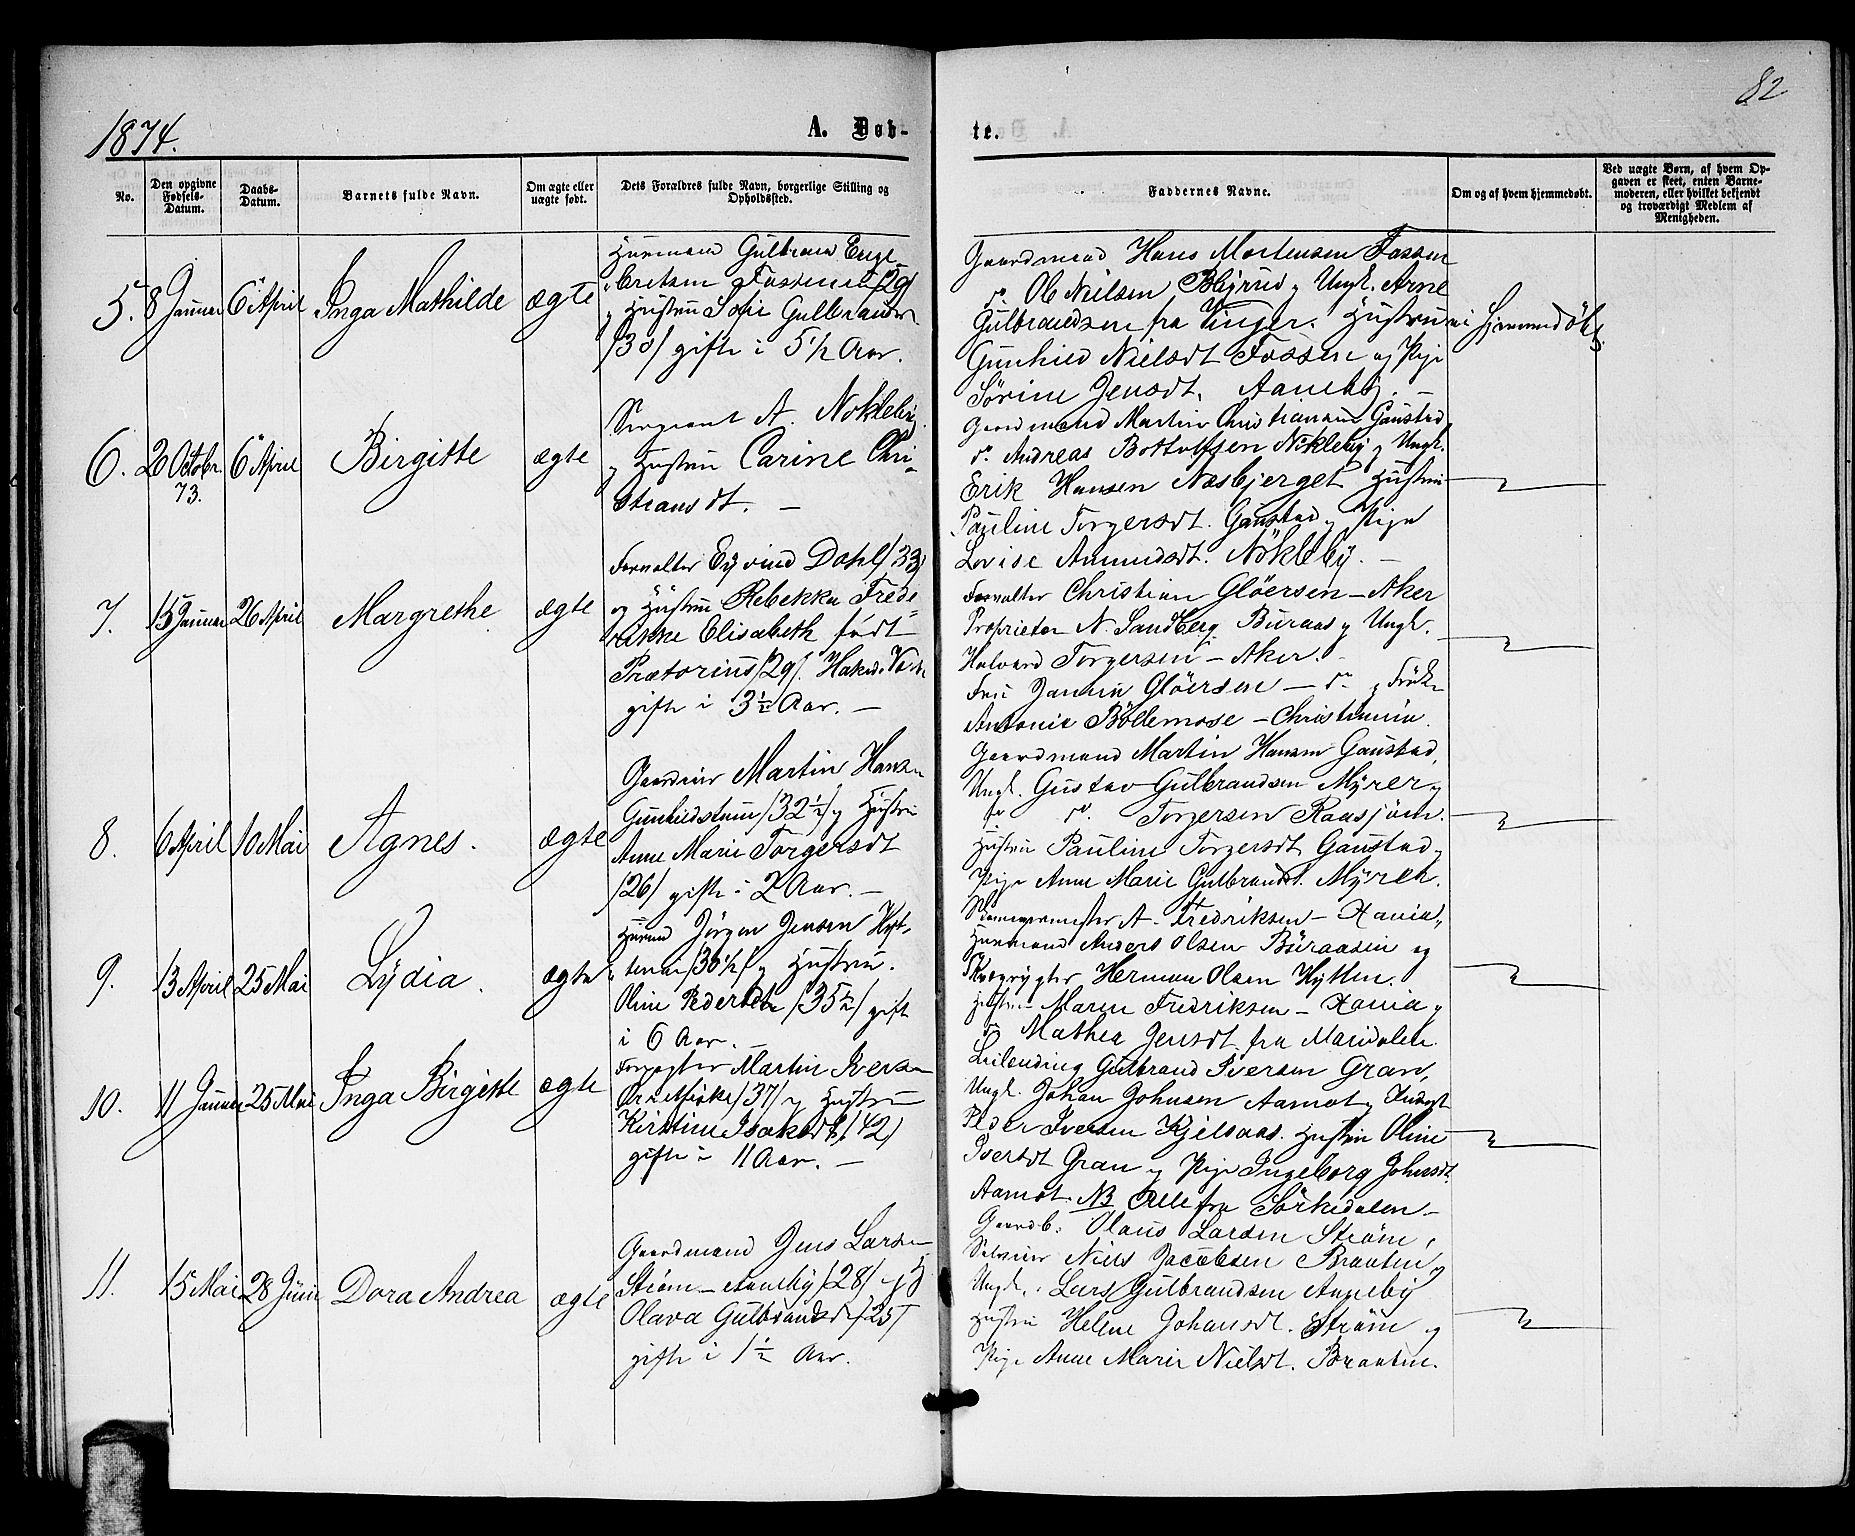 82
1874.
A. Døb-
te.
No.
Den opgivne Fødsels-Datum.
Daabs-Datum.
Barnets fulde Navn.
Om ægte eller uægte født.
Dets Forældres fulde Navn, borgerlige Stilling og Opholdssted.
Faddernes Navne.
Om og af hvem hjemmedøbt.
Ved uægte Børn, af hvem Opgaven er skeet, enten Barnemoderen, eller hvilket bekjendt og troværdigt Medlem af Menigheden.
5. 8 Januar 6 April Inga Mathilde ægte
Huusmand Gulbrand Enge-
bretsen Fosseneie /29/
og Hustru Sofie Gulbrandsdt
/30/ gifte i 5 1/2 Aar.
Gaardmand Hans Mortensen Fossen
do. Ole Nielsen Bligrud og Ungk. Arne
Gulbrandsen fra Vinger. Hustru
Gunhild Nielsdt Fossen og Pige
Sørine Jensdt. Aaneby. –
ei hjemmedøbt
6. 20 Octobr. 73. 6 April Birgitte ægte
Sergeant A. Nokleby
og Hustru Carine Chri-
stiansdt. –
Gaardmand Martin Christiansen Gaustad
do. Andreas Bottolfsen Nökleby og Ungk.
Erik Hansen Næsbjerget Hustru
Pauline Torgersdt. Gaustad og Pige
Lovise Amundsdt. Nökleby. –
7. 15 Januar 26 April Margrethe ægte
Forvalter Eyvind Dahl /33/
og Hustru Rebekka Frede-
rikke Elisabeth født
Prætorius /29/. Haked. Værk
gifte i 3 1/2 Aar. –
Forvalter Christian Glöersen – Aker
Proprietær N. Sandberg Buraas og Ungk.
Halvard Torgersen – Aker. –
Fru Jannin Glöersen – do. og Frøken
Antonie Böllemose – Christiania.
8. 6 April 10 Mai Agnes. ægte
Gaardeier Martin Hansen
Gunhildstuen /32 1/2/ og Hustru
Anne Marie Torgersdt
/26/ gifte i 2 Aar. –
Gaardmand Martin Hansen Gaustad,
Ungk. Gustav Gulbrandsen Myrer og
do. Torgersen Raasjöen.
Hustru Pauline Torgersdt Gaustad og
Pige Anne Marie Gulbrandsdt. Myren.
9. 13 April 25 Mai Lydia. ægte
Huusmd Jörgen Jensen Hyt-
teneie /36 1/2/ og Hustru.
Oline Pedersdt /35 1/2/ gift
i 6 Aar. –
A. Fredriksen – Xania,
Huusmand Anders Olsen Büraasein og
Skovrygter Herman Olsen Hytten.
Hustru Maren Fredriksen – Xania og
do Mathea Jensdt. fra Maridalen.
10. 11 Januar 25 Mai Inga Birgitte ægte
Forpagter Martin Iversen
/37/ og Hustru
Kirstine Isaksdt. /42/
gifte i 11 Aar. –
Leilending Gulbrand Iversen Gran,
Ungk. Johan Johnsen Aamot og
Peder Iversen Kjelsaas. Hustru Oline
Iversdt Gran og Pige Ingeborg Johnsdt.
Aamot. NB Alle fra Sörkedalen –
11. 15 Mai 28 Juni Dora Andrea ægte
Gaardmand Jens Larsen
Ström – Aaneby /28/ og
Olava Gulbrandsdt /25/
gifte i 1 1/2 Aar.
Gaardb. Olaus Larsen Ström,
Selveier Niels Jacobsen Braaten og
Ungk. Lars Gulbrandsen Aaneby
Hustru Helene Johansdt. Ström og
Pige Anne Marie Nielsdt. Braaten.